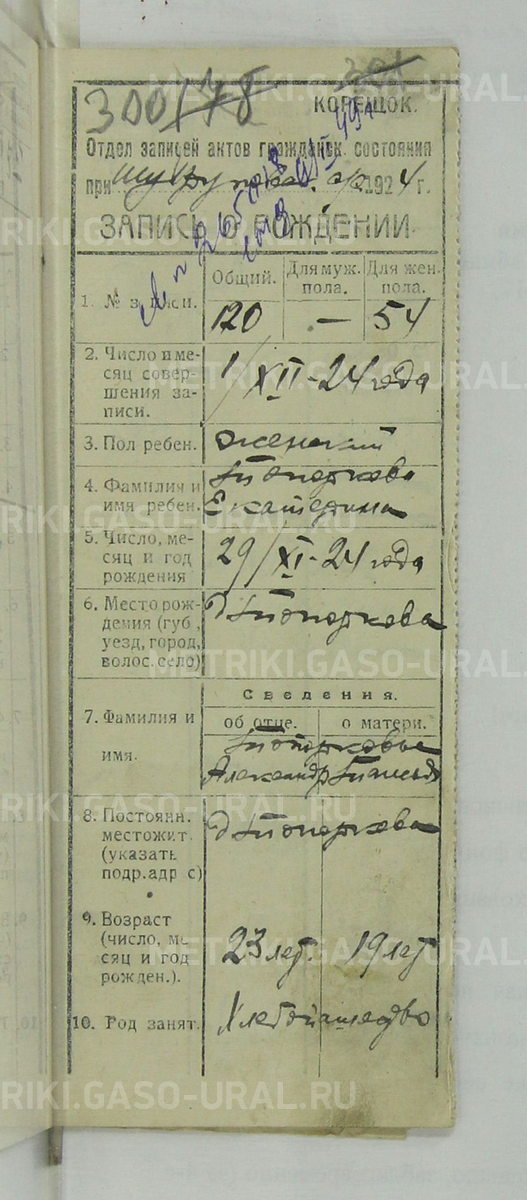 300/78
КОРЕШОК.
Отдел записей актов гражданск. состояния
при 1924 г.
ЗАПИСЬ О РОЖДЕНИИ
1. № записи. Общий. Для муж. пола. Для жен. пола.
120 — 54
2. Число и ме-
сяц совер-
шения за-
писи.
1/XII-24 года
3. Пол ребен. женский
4. Фамилия и
имя ребен.
Топоркова
Екатерина
5. Число, ме-
сяц и год
рождения
29/XI-24 года
6. Место рож-
дения (губ.,
уезд, город,
волос. село)
Д Топоркова
Сведения.
об отце. о матери.
7. Фамилия и
имя.
Топорковы
Александр
8. Постоянн.
местожит.
(указать
подр. адр с)
Д Топоркова
9. Возраст
(число, ме
сяц и год
рожден.).
23 лет. 19 лет
10. Род занят. Хлебопашество
METRIKI.GASO-URAL.RU